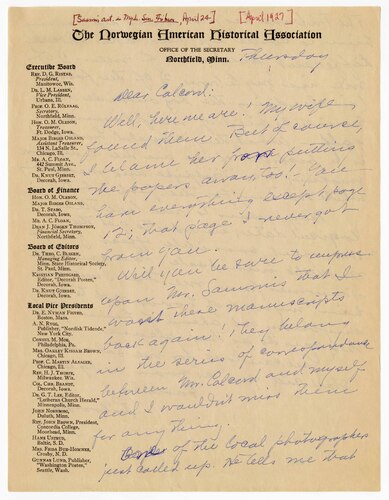 [Sammis art. in Mpls. Sun. Tribune, April 24.]
[April 1927]
The Norwegian American Historical Association
OFFICE OF THE SECRETARY
Northfield, Minn.
Thursday
Executive Board
REV. D. G. RISTAD,
President,
Manitowoc, Wis.
DR. L. M. LARSEN,
Vice President,
Urbana, Ill.
PROF. O. E. RÖLVAAG,
Secretary,
Northfield, Minn.
HON. O. M. OLESON,
Treasurer,
Ft. Dodge, Iowa.
MAJOR BIRGER OSLAND,
Assistant Treasurer,
134 N. LaSalle St.,
Chicago, Ill.
MR. A. C. FLOAN,
442 Summit Ave.
St. Paul, Minn.
DR. KNUT GJERSET,
Decorah, Iowa.
Board of Finance
HON. O. M. OLESON,
MAJOR BIRGER OSLAND,
DR. T. STABO,
Decorah, Iowa.
MR. A. C. FLOAN,
DEAN J. JÖRGEN THOMPSON,
Financial Secretary,
Northfield, Minn.
Board of Editors
DR. THEO. C. BLEGEN,
Managing Editor,
Minn. State Historical Society,
St. Paul, Minn.
KRISTIAN PRESTGARD,
Editor, "Decorah Posten,"
Decorah, Iowa.
DR. KNUT GJERSET,
Decorah, Iowa.
Local Vice Presidents
DR. E. NYMAN FIGVED,
Boston, Mass.
A. N. RYGG,
Publisher, "Nordisk Tidende,"
New York City.
CONSUL M. MOE,
Philadelphia, Pa.
MRS. OAKLEY KISSAM BROWN,
Chicago, Ill.
PROF. C. MARTIN ALSAGER,
Chicago, Ill.
REV. H. J. THORPE,
Milwaukee, Wis.
COL. CHR. BRANDT,
Decorah, Iowa.
DR. G. T. LEE, Editor,
"Lutheran Church Herald,"
Minneapolis, Minn.
JOHN NORMOE,
Duluth, Minn.
REV. JOHN BROWN, President
Concordia College,
Moorhead, Minn.
HANS URDAHL,
Baltic, S. D.
Crosby, N. D.
GUNNAR LUND, Publisher,
"Washington Posten,"
Seattle, Wash.
Dear Colcord:
Well, here we are! My wife
found them. But of course,
I blame her for putting
the papers away, too! You
have everything except page
12; that page I never got
from you.
Will you be sure to impress
upon Mr. Sammis that I
want these manuscripts
back again! They belong
in the series of correspondence
between Mr. Colcord and myself
and I wouldn't miss them
for anything.
One of the local photographers
just called up. He tells me that